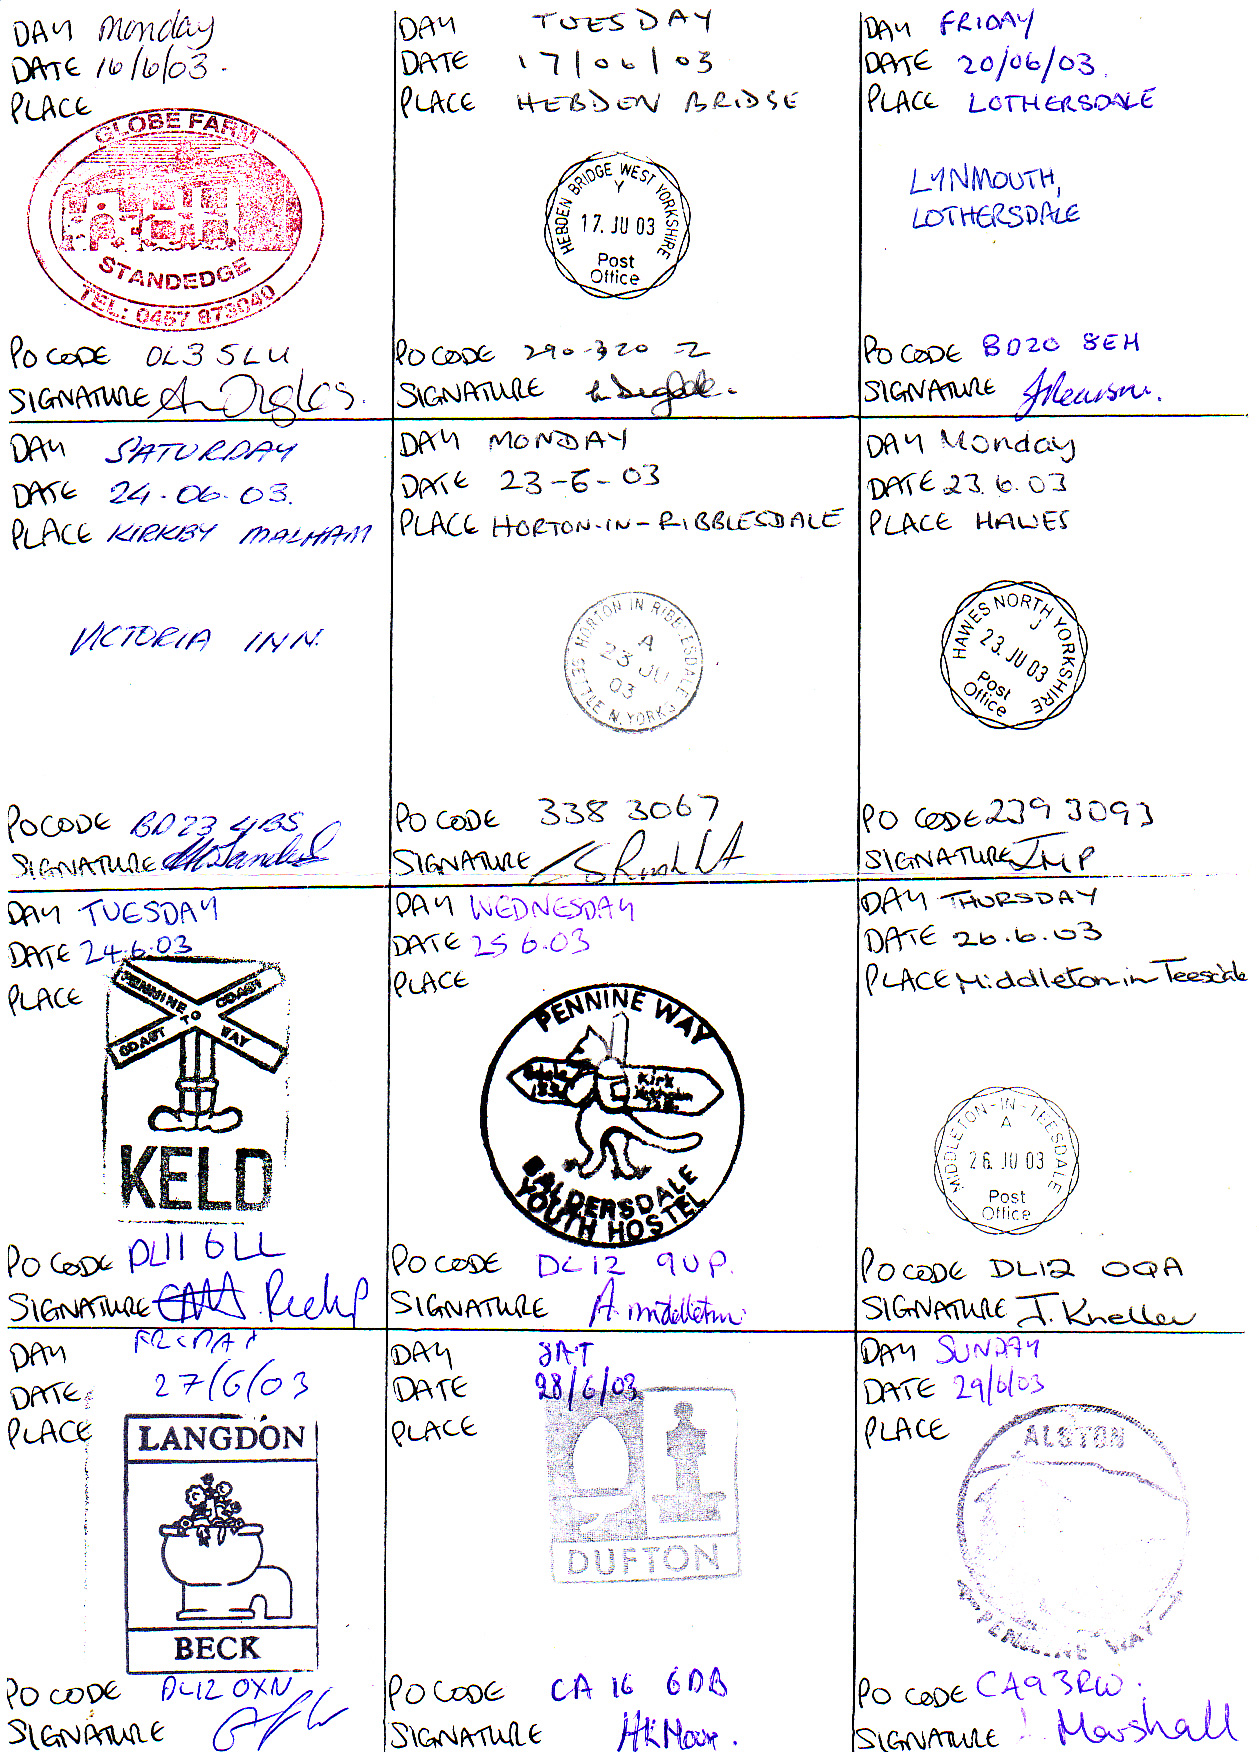 DAY Monday
DATE 16/6/03.
PLACE
GLOBE FARM
STANDEDGE
TEL: 0457 873040
PO CODE OL3 5LU
SIGNATURE
DAY TUESDAY
DATE 17/06/03
PLACE HEBDEN BRIDGE
HEBDEN BRIDGE WEST YORKSHIRE
Y
17. JU 03
Post
Office
PO CODE 290-320 -2
SIGNATURE
DAY FRIDAY
DATE 20/06/03.
PLACE LOTHERSDALE
LYNMOUTH,
LOTHERSDALE
PO CODE BD20 8EH
SIGNATURE
DAY SATURDAY
DATE 24-06-03.
PLACE KIRKBY MALHAM
VICTORIA INN.
PO CODE BD23 4BS
SIGNATURE
DAY MONDAY
DATE 23-6-03
PLACE HORTON-IN-RIBBLESDALE
HORTON IN RIBBLESDALE
A
23 JU
03
SETTLE N.YORKS
PO CODE 338 3067
SIGNATURE
DAY Monday
DATE 23.6.03
PLACE HAWES
HAWES NORTH YORKSHIRE
J
23. JU 03
Post
Office
PO CODE 239 3093
SIGNATURE JMP
DAY TUESDAY
DATE 24.6.03
PLACE
PENNINE WAY
COAST TO COAST
KELD
PO CODE DL11 6LL
SIGNATURE
DAY WEDNESDAY
DATE 25 6.03
PLACE
PENNINE WAY
Kirk
BALDERSDALE
YOUTH HOSTEL
PO CODE DL12 9UP.
SIGNATURE A. Middleton
DAY THURSDAY
DATE 26.6.03
PLACE Middleton-in-Teesdale
MIDDLETON-IN-TEESDALE
A
26. JU 03
Post
Office
PO CODE DL12 0QA
SIGNATURE J. Kneller
DAY FRIDAY
DATE 27/6/03
PLACE
LANGDON
BECK
PO CODE DL12 0XN
SIGNATURE
DAY SAT
DATE 28/6/03
PLACE
DUFTON
PO CODE CA 16 6DB
SIGNATURE
DAY SUNDAY
DATE 29/6/03
PLACE
ALSTON
PENNINE WAY
PO CODE CA9 3RW.
SIGNATURE Marshall